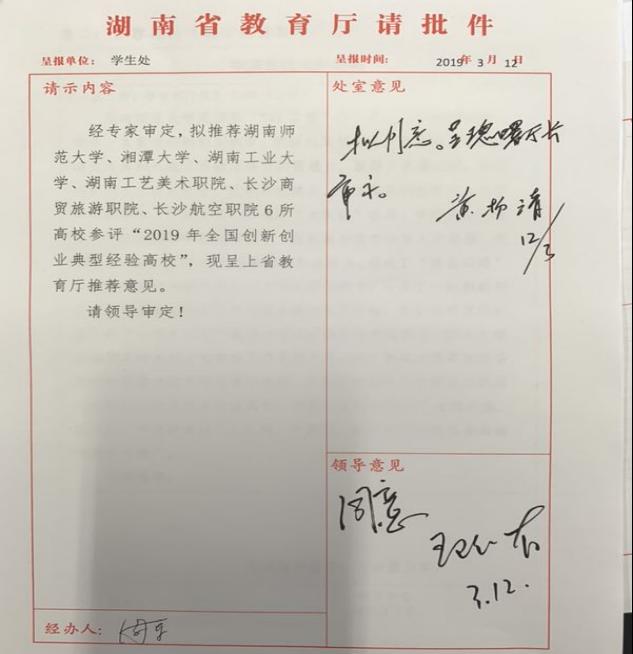 湖南省教育厅请批件
呈报单位: 学生处
呈报时间: 2019年3月12日
请示内容
经专家审定，拟推荐湖南师
范大学、湘潭大学、湖南工业大
学、湖南工艺美术职院、长沙商
贸旅游职院、长沙航空职院6所
高校参评“2019年全国创新创
业典型经验高校”，现呈上省教
育厅推荐意见。
请领导审定！
处室意见
拟同意。呈
厅长
审示。
12/3
领导意见
同意
3.12.
经办人: